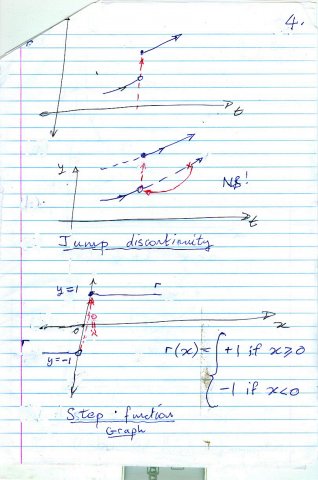 4.
t
y
NB!
t
Jump discontinuity
y=1 r
0
x
r
y=-1
r(x) = { +1 if x ≥ 0
-1 if x < 0
Step function
Graph